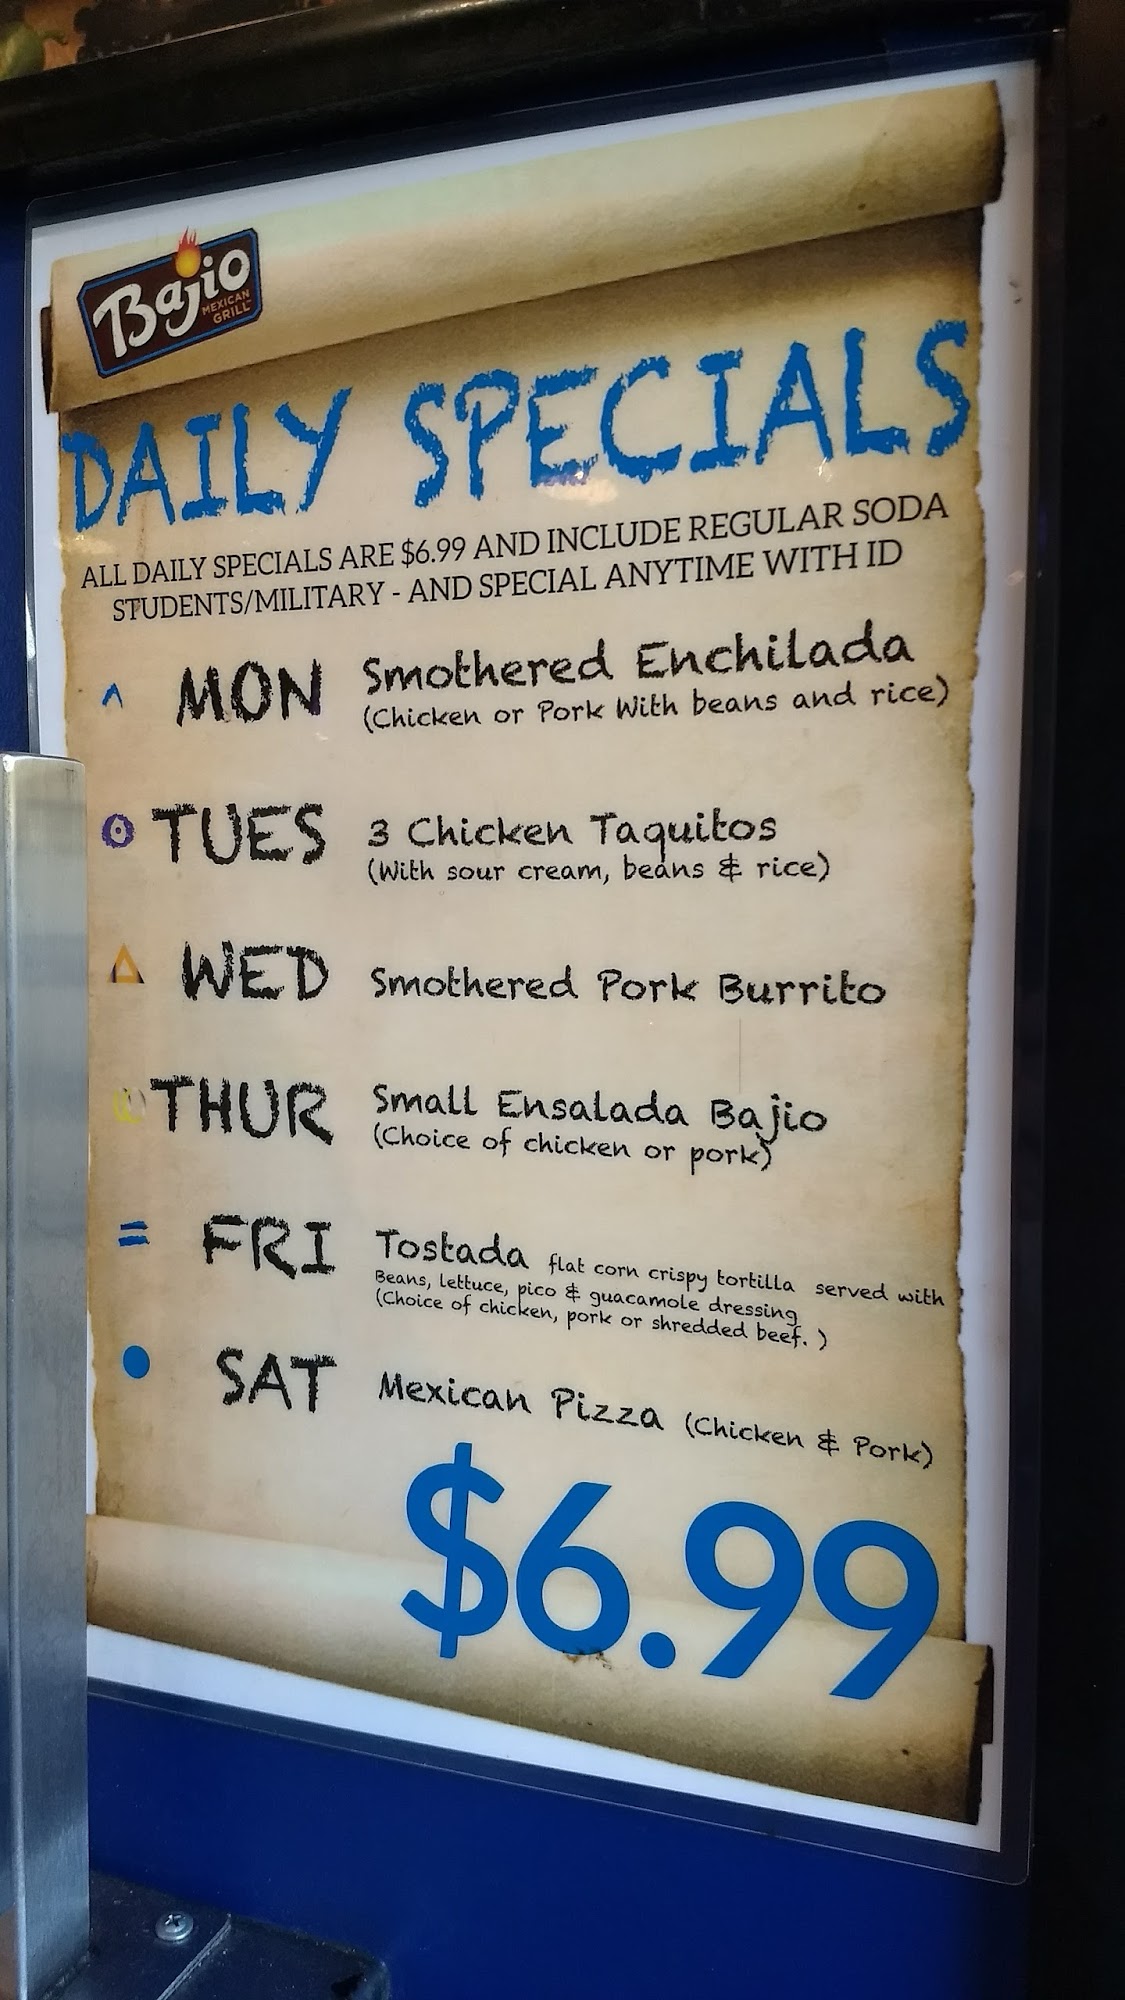 Bajio
MEXICAN
GRILL
DAILY SPECIALS
ALL DAILY SPECIALS ARE $6.99 AND INCLUDE REGULAR SODA
STUDENTS/MILITARY - AND SPECIAL ANYTIME WITH ID
^ MON Smothered Enchilada
(Chicken or Pork With beans and rice)
TUES 3 Chicken Taquitos
(With sour cream, beans & rice)
WED Smothered Pork Burrito
THUR Small Ensalada Bajio
(Choice of chicken or pork)
= FRI Tostada flat corn crispy tortilla served with
Beans, lettuce, pico & guacamole dressing
(Choice of chicken, pork or shredded beef. )
SAT Mexican Pizza (Chicken & Pork)
$6.99